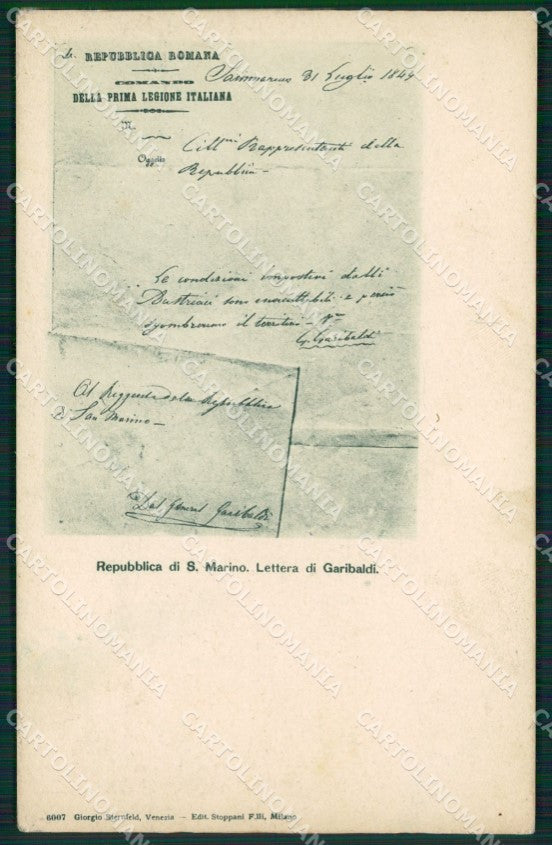 REPUBBLICA ROMANA
COMANDO
DELLA PRIMA LEGIONE ITALIANA
Sanmarino 31 Luglio 1849
N.
Oggetto
Citt.ni Rappresentanti della
Repubblica —
Le condizioni impostevi dalli
Austriaci sono inaccettabili e perciò
sgombreremo il territorio — V.ro
G. Garibaldi
Al Reggente della Repubblica
di San Marino —
Dal General Garibaldi
Repubblica di S. Marino. Lettera di Garibaldi.
6007 Giorgio Sternfeld, Venezia — Edit. Stoppani F.lli, Milano
CARTOLINOMANIA